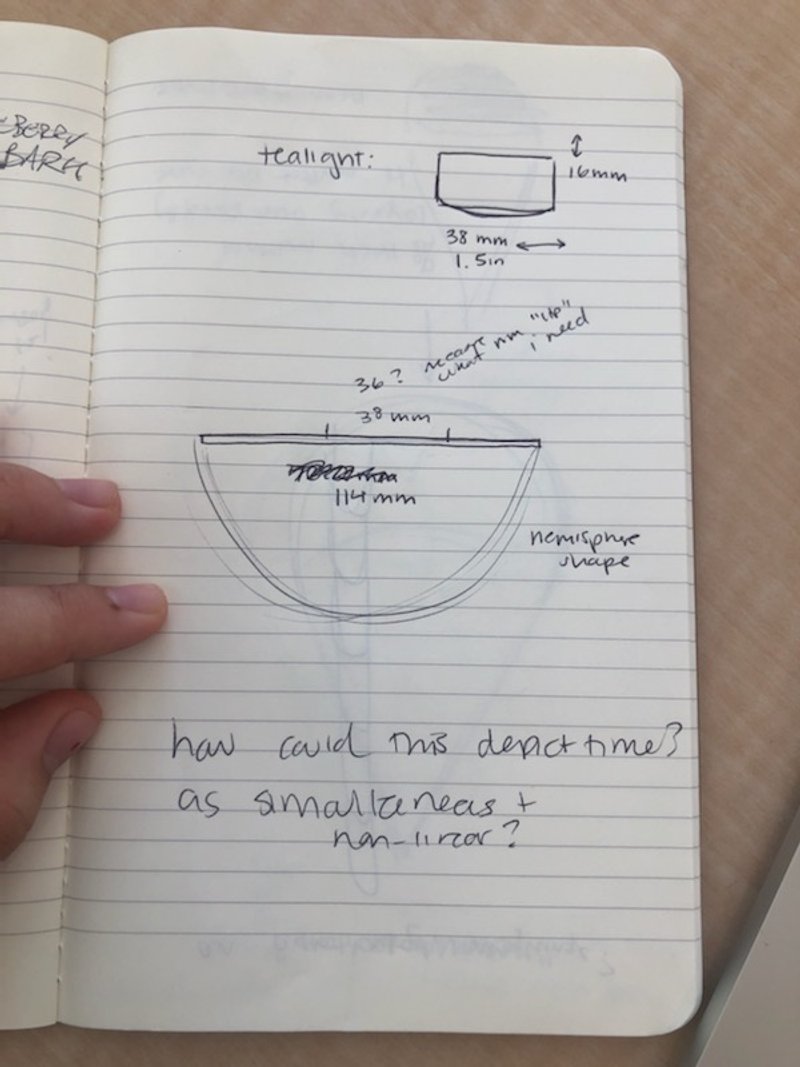 EBERRY
BARK
tealight:
16mm
38 mm
1.5in
36?
what mm "lip"
i need
38 mm
114 mm
hemisphere
shape
how could this depict time?
as simaltaneas +
non-linear?